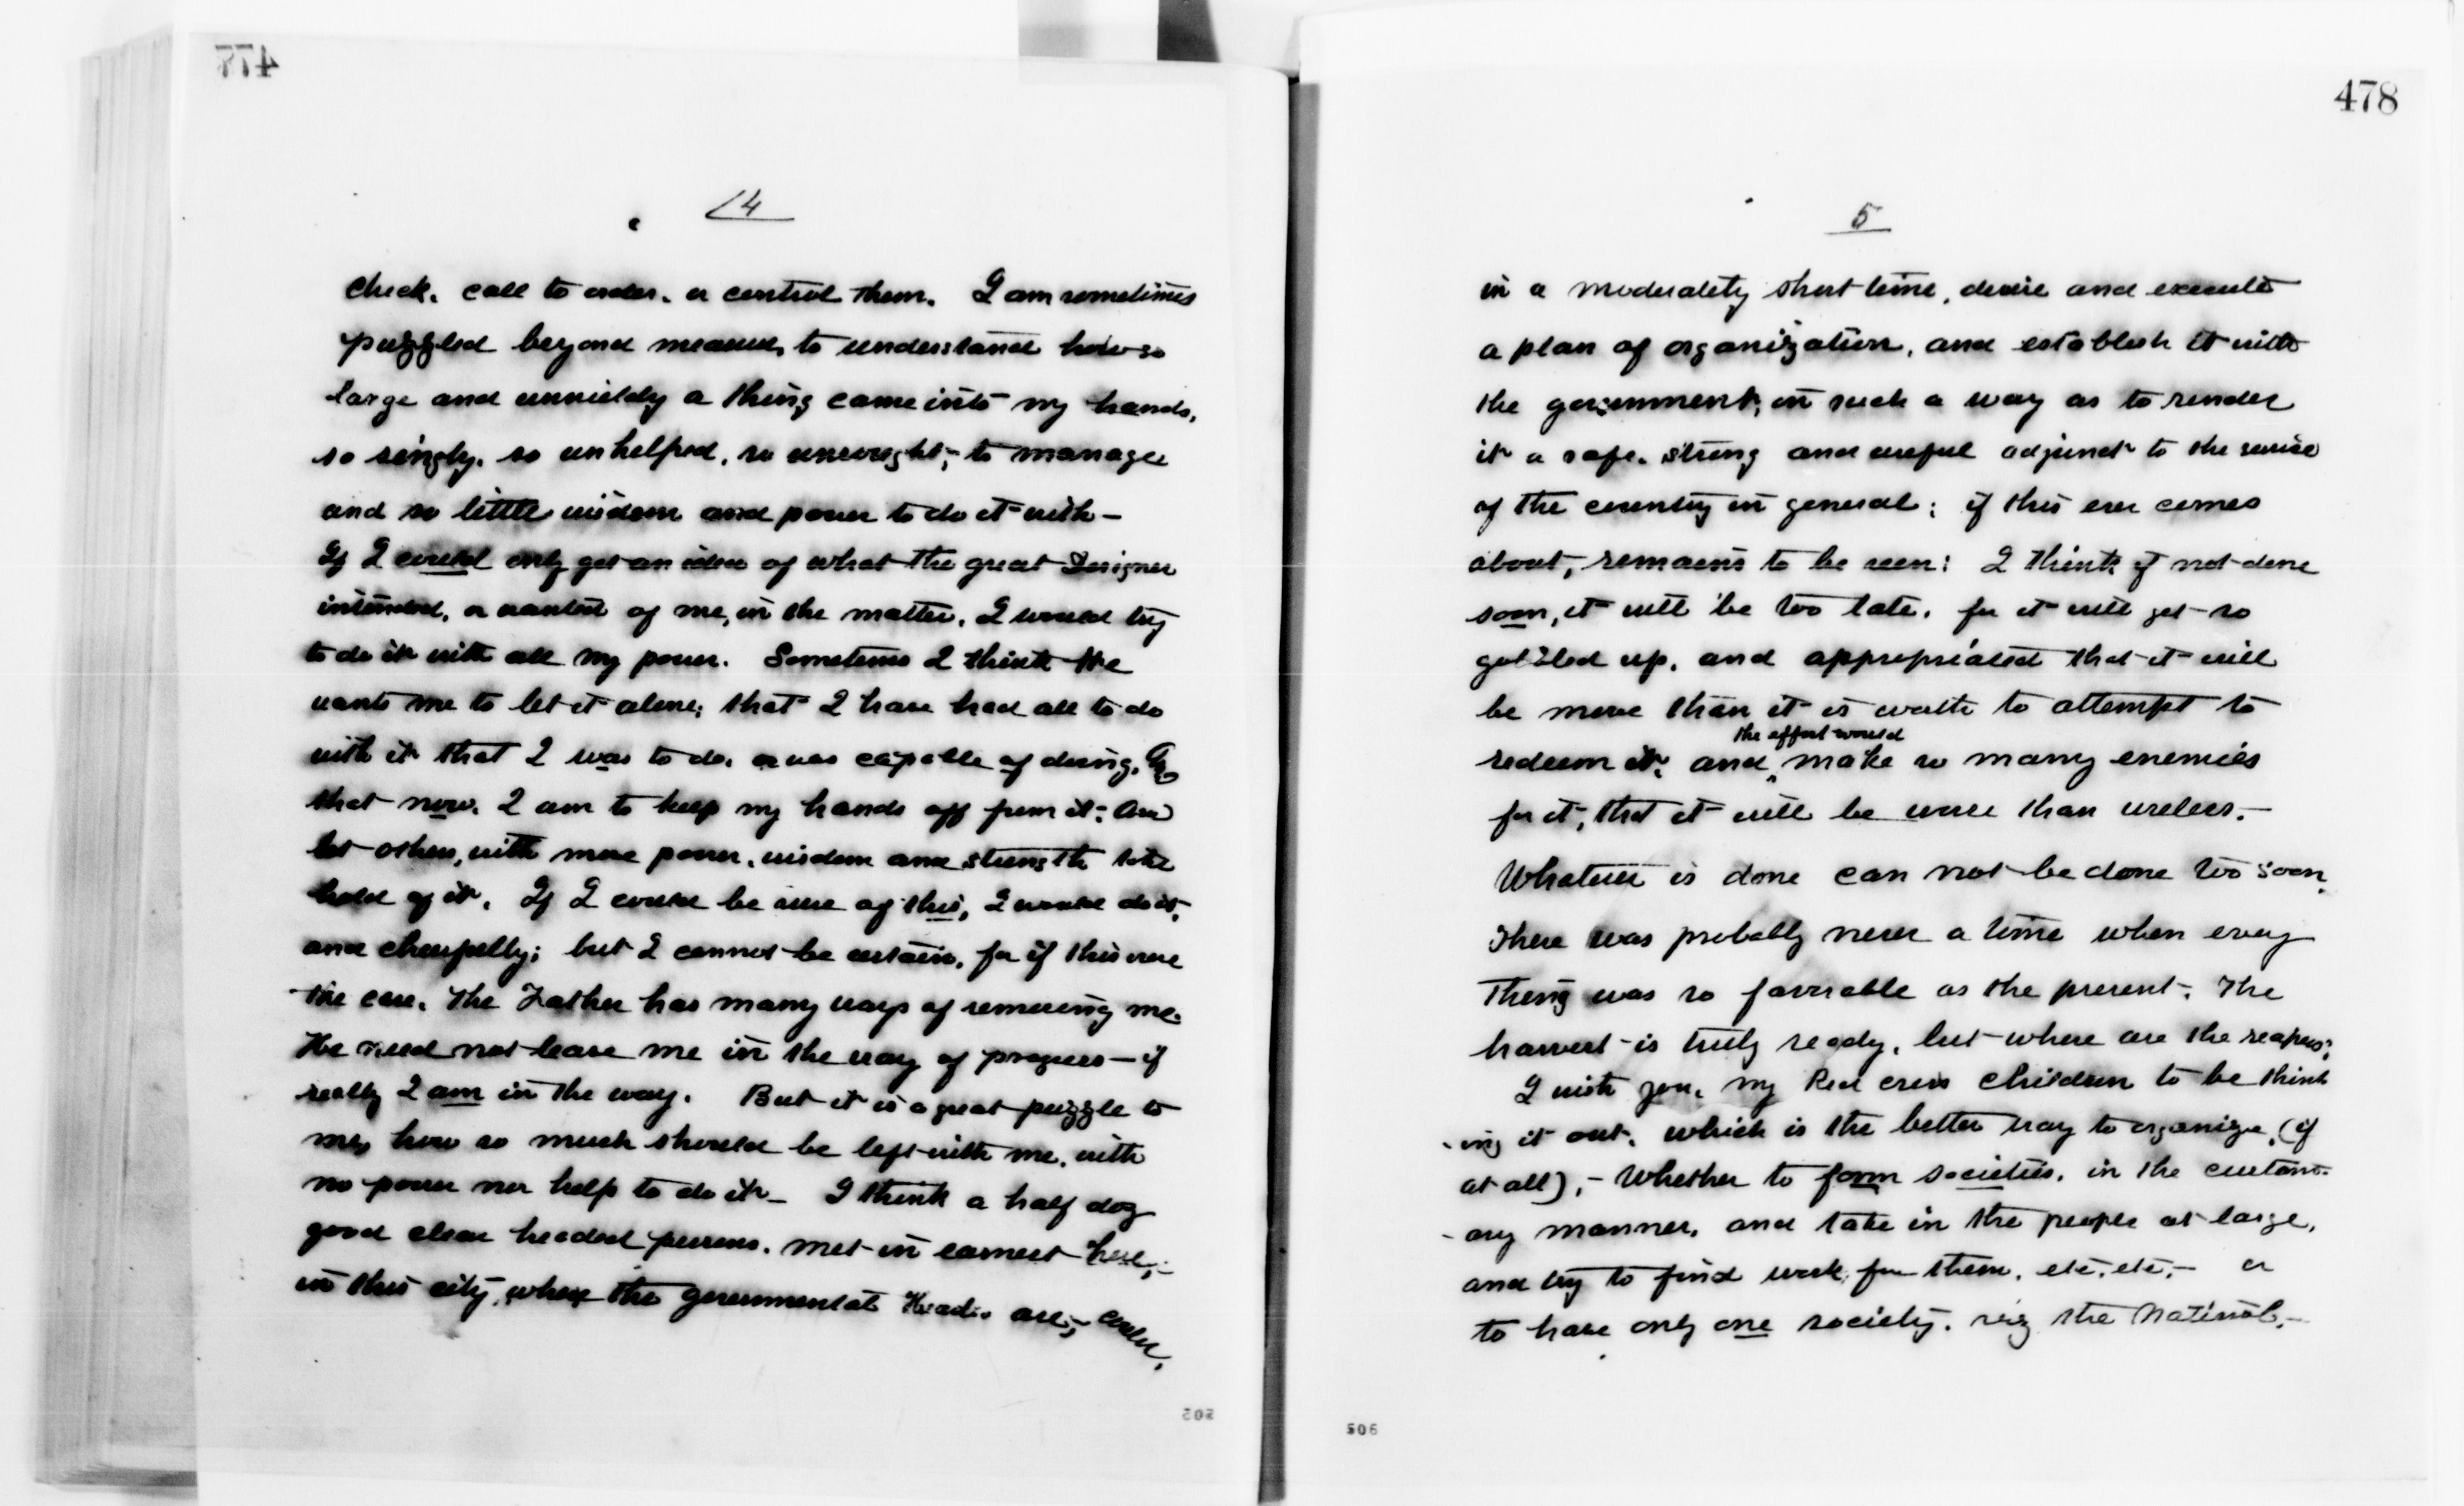 477
4
check, call to order, or control them. I am sometimes
puzzled beyond measure, to understand how so
large and unwieldy a thing came into my hands,
so singly, so unhelped, so unsought,- to manage
and so little wisdom and power to do it with-
If I could only get an idea of what the great Designer
intended, or wanted of me, in the matter, I would try
to do it with all my power. Sometimes I think He
wants me to let it alone; that I have had all to do
with it that I was to do, or was capable of doing,
that now, I am to keep my hands off from it; and
let others, with more power, wisdom and strength take
hold of it. If I could be sure of this, I would do it,
and cheerfully; but I cannot be certain, for if this were
the case, the Father has many ways of removing me.
He need not leave me in the way of progress - if
really I am in the way. But it is a great puzzle to
me, how so much should be left with me, with
no power nor help to do it- I think a half doz
good clear headed persons, met in earnest here,-
in this city, where the governmental Heads are,- could,
505
478
5
in a moderately short time, devise and execute
a plan of organization, and establish it with
the government, in such a way as to render
it a safe, strong and useful adjunct to the service
of the country in general; if this ever comes
about, remains to be seen; I think if not done
soon, it will be too late, for it will get so
gobbled up, and appropriated that it will
be more than it is worth to attempt to
the effort would
redeem it, and make so many enemies
for it, that it will be worse than useless.-
Whatever is done can not be done too soon,
There was probably never a time when every
thing was so favorable as the present. The
harvest is truly ready, but where are the reapers;
I wish you, my Red Cross children to be think
-ing it out, which is the better way to organize, (if
at all),- Whether to form societies, in the custom-
-ary manner, and take in the people at large,
and try to find work for them, etc, etc,- or
to have only one society, viz the National.-
506